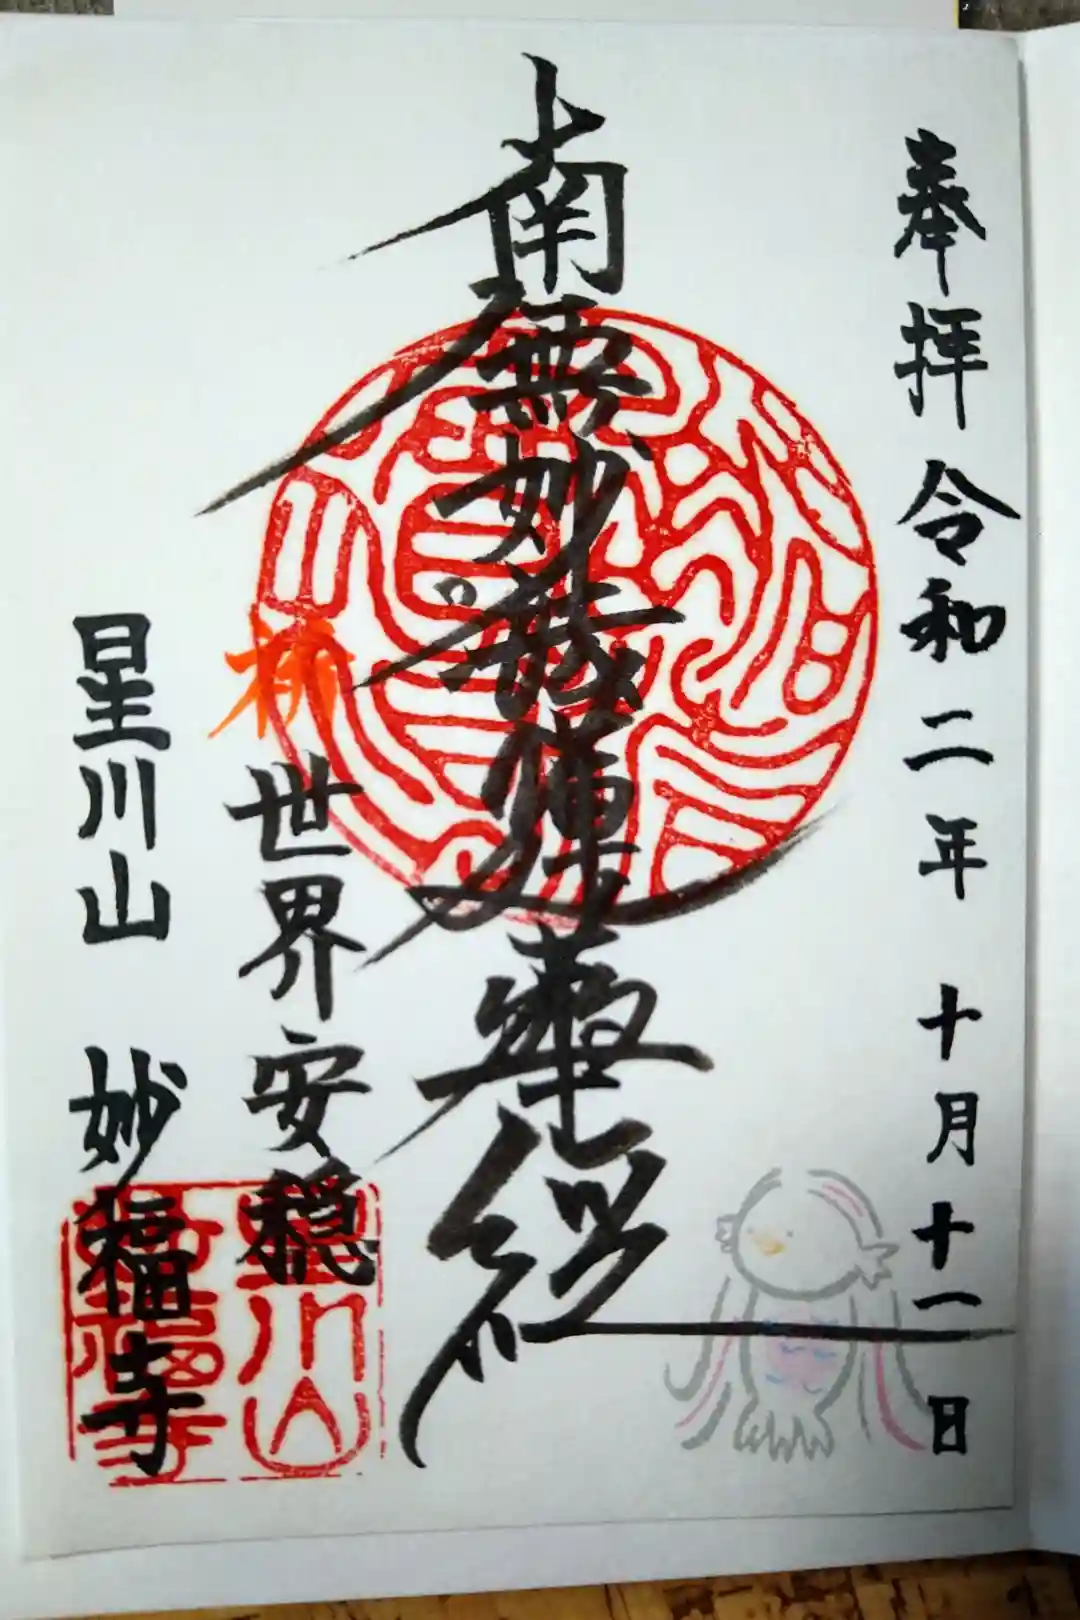 奉拝 令和二年 十月十一日
南無妙法蓮華経
祈
世界安穏
星川山 妙福寺